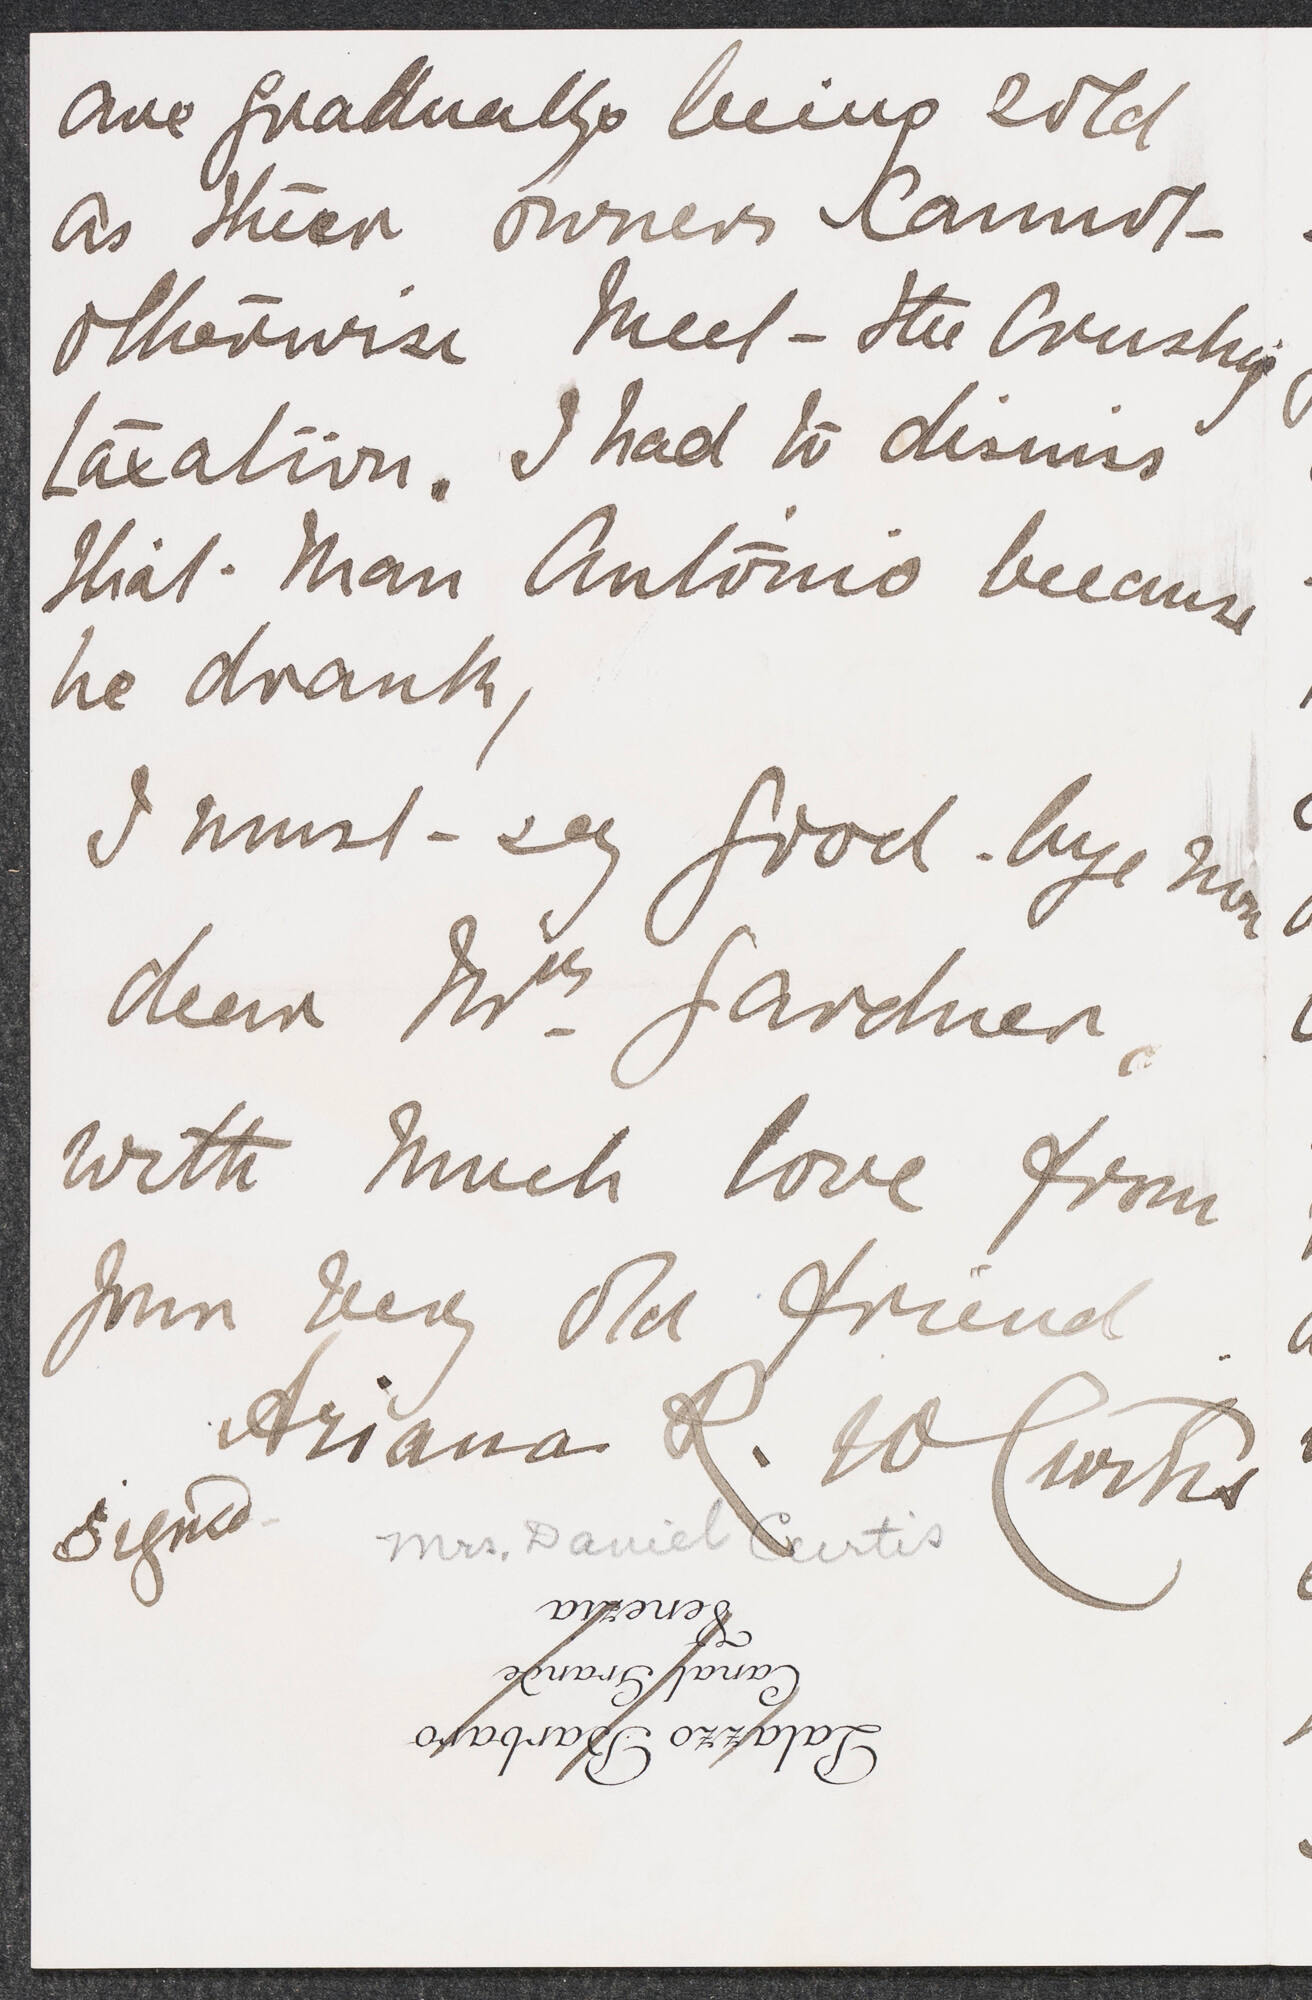 are gradually being sold
as their owners cannot
otherwise meet the crushing
taxation. I had to dismiss
that man Antonio because
he drank,
I must say good-bye now
dear Mrs Gardner,
with much love from
your very old friend
Ariana R. W Curtis
signed
Mrs. Daniel Curtis
Palazzo Barbaro
Canal Grande
Venezia